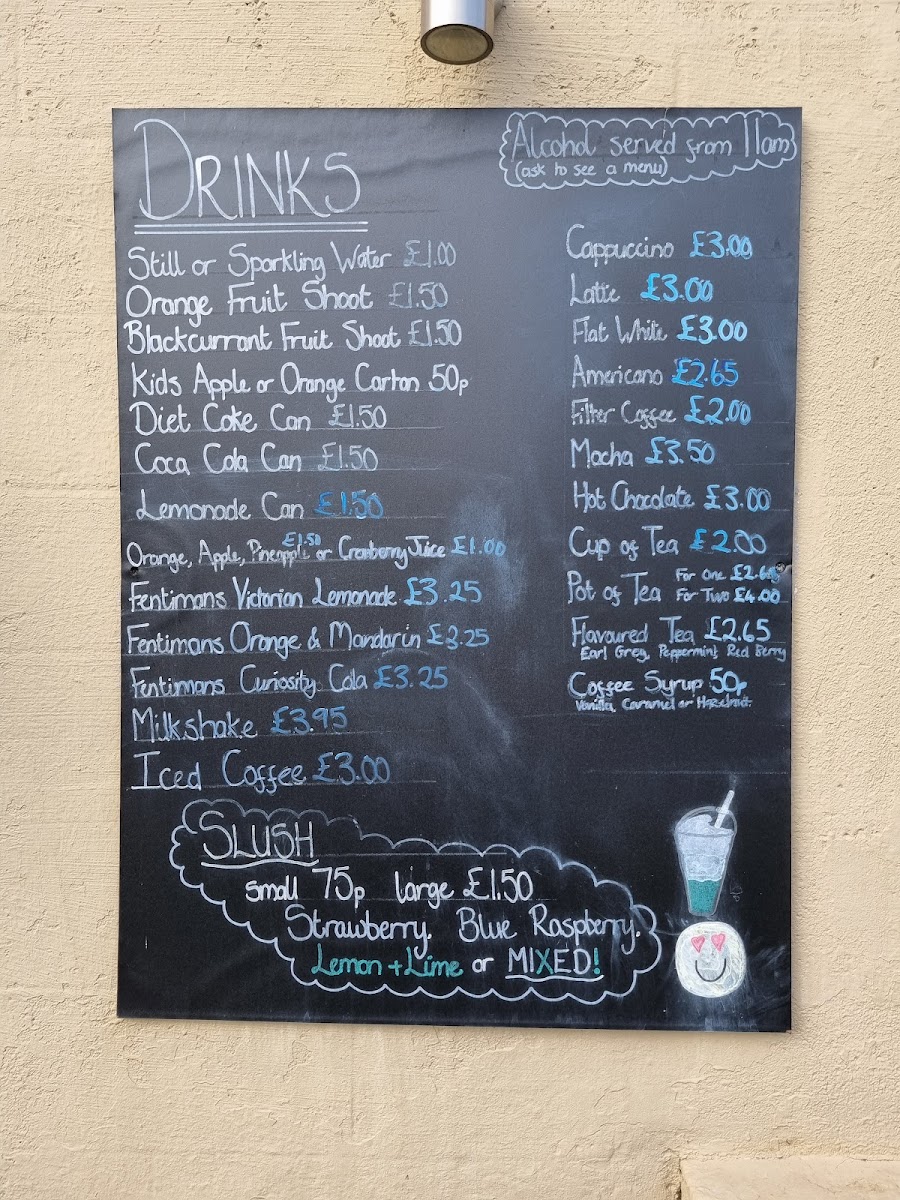 DRINKS
Alcohol served from 11am
(ask to see a menu)
Still or Sparkling Water £1.00
Orange Fruit Shoot £1.50
Blackcurrant Fruit Shoot £1.50
Kids Apple or Orange Carton 50p
Diet Coke Can £1.50
Coca Cola Can £1.50
Lemonade Can £1.50
£1.50
Orange, Apple, Pineapple or Cranberry Juice £1.00
Fentimans Victorian Lemonade £3.25
Fentimans Orange & Mandarin £3.25
Fentimans Curiosity Cola £3.25
Milkshake £3.95
Iced Coffee £3.00
Cappuccino £3.00
Latte £3.00
Flat White £3.00
Americano £2.65
Filter Coffee £2.00
Mocha £3.50
Hot Chocolate £3.00
Cup of Tea £2.00
Pot of Tea For One £2.65
For Two £4.00
Flavoured Tea £2.65
Earl Grey, Peppermint, Red Berry
Coffee Syrup 50p
Vanilla, Caramel or Hazelnut.
SLUSH
small 75p large £1.50
Strawberry, Blue Raspberry,
Lemon + Lime or MIXED!